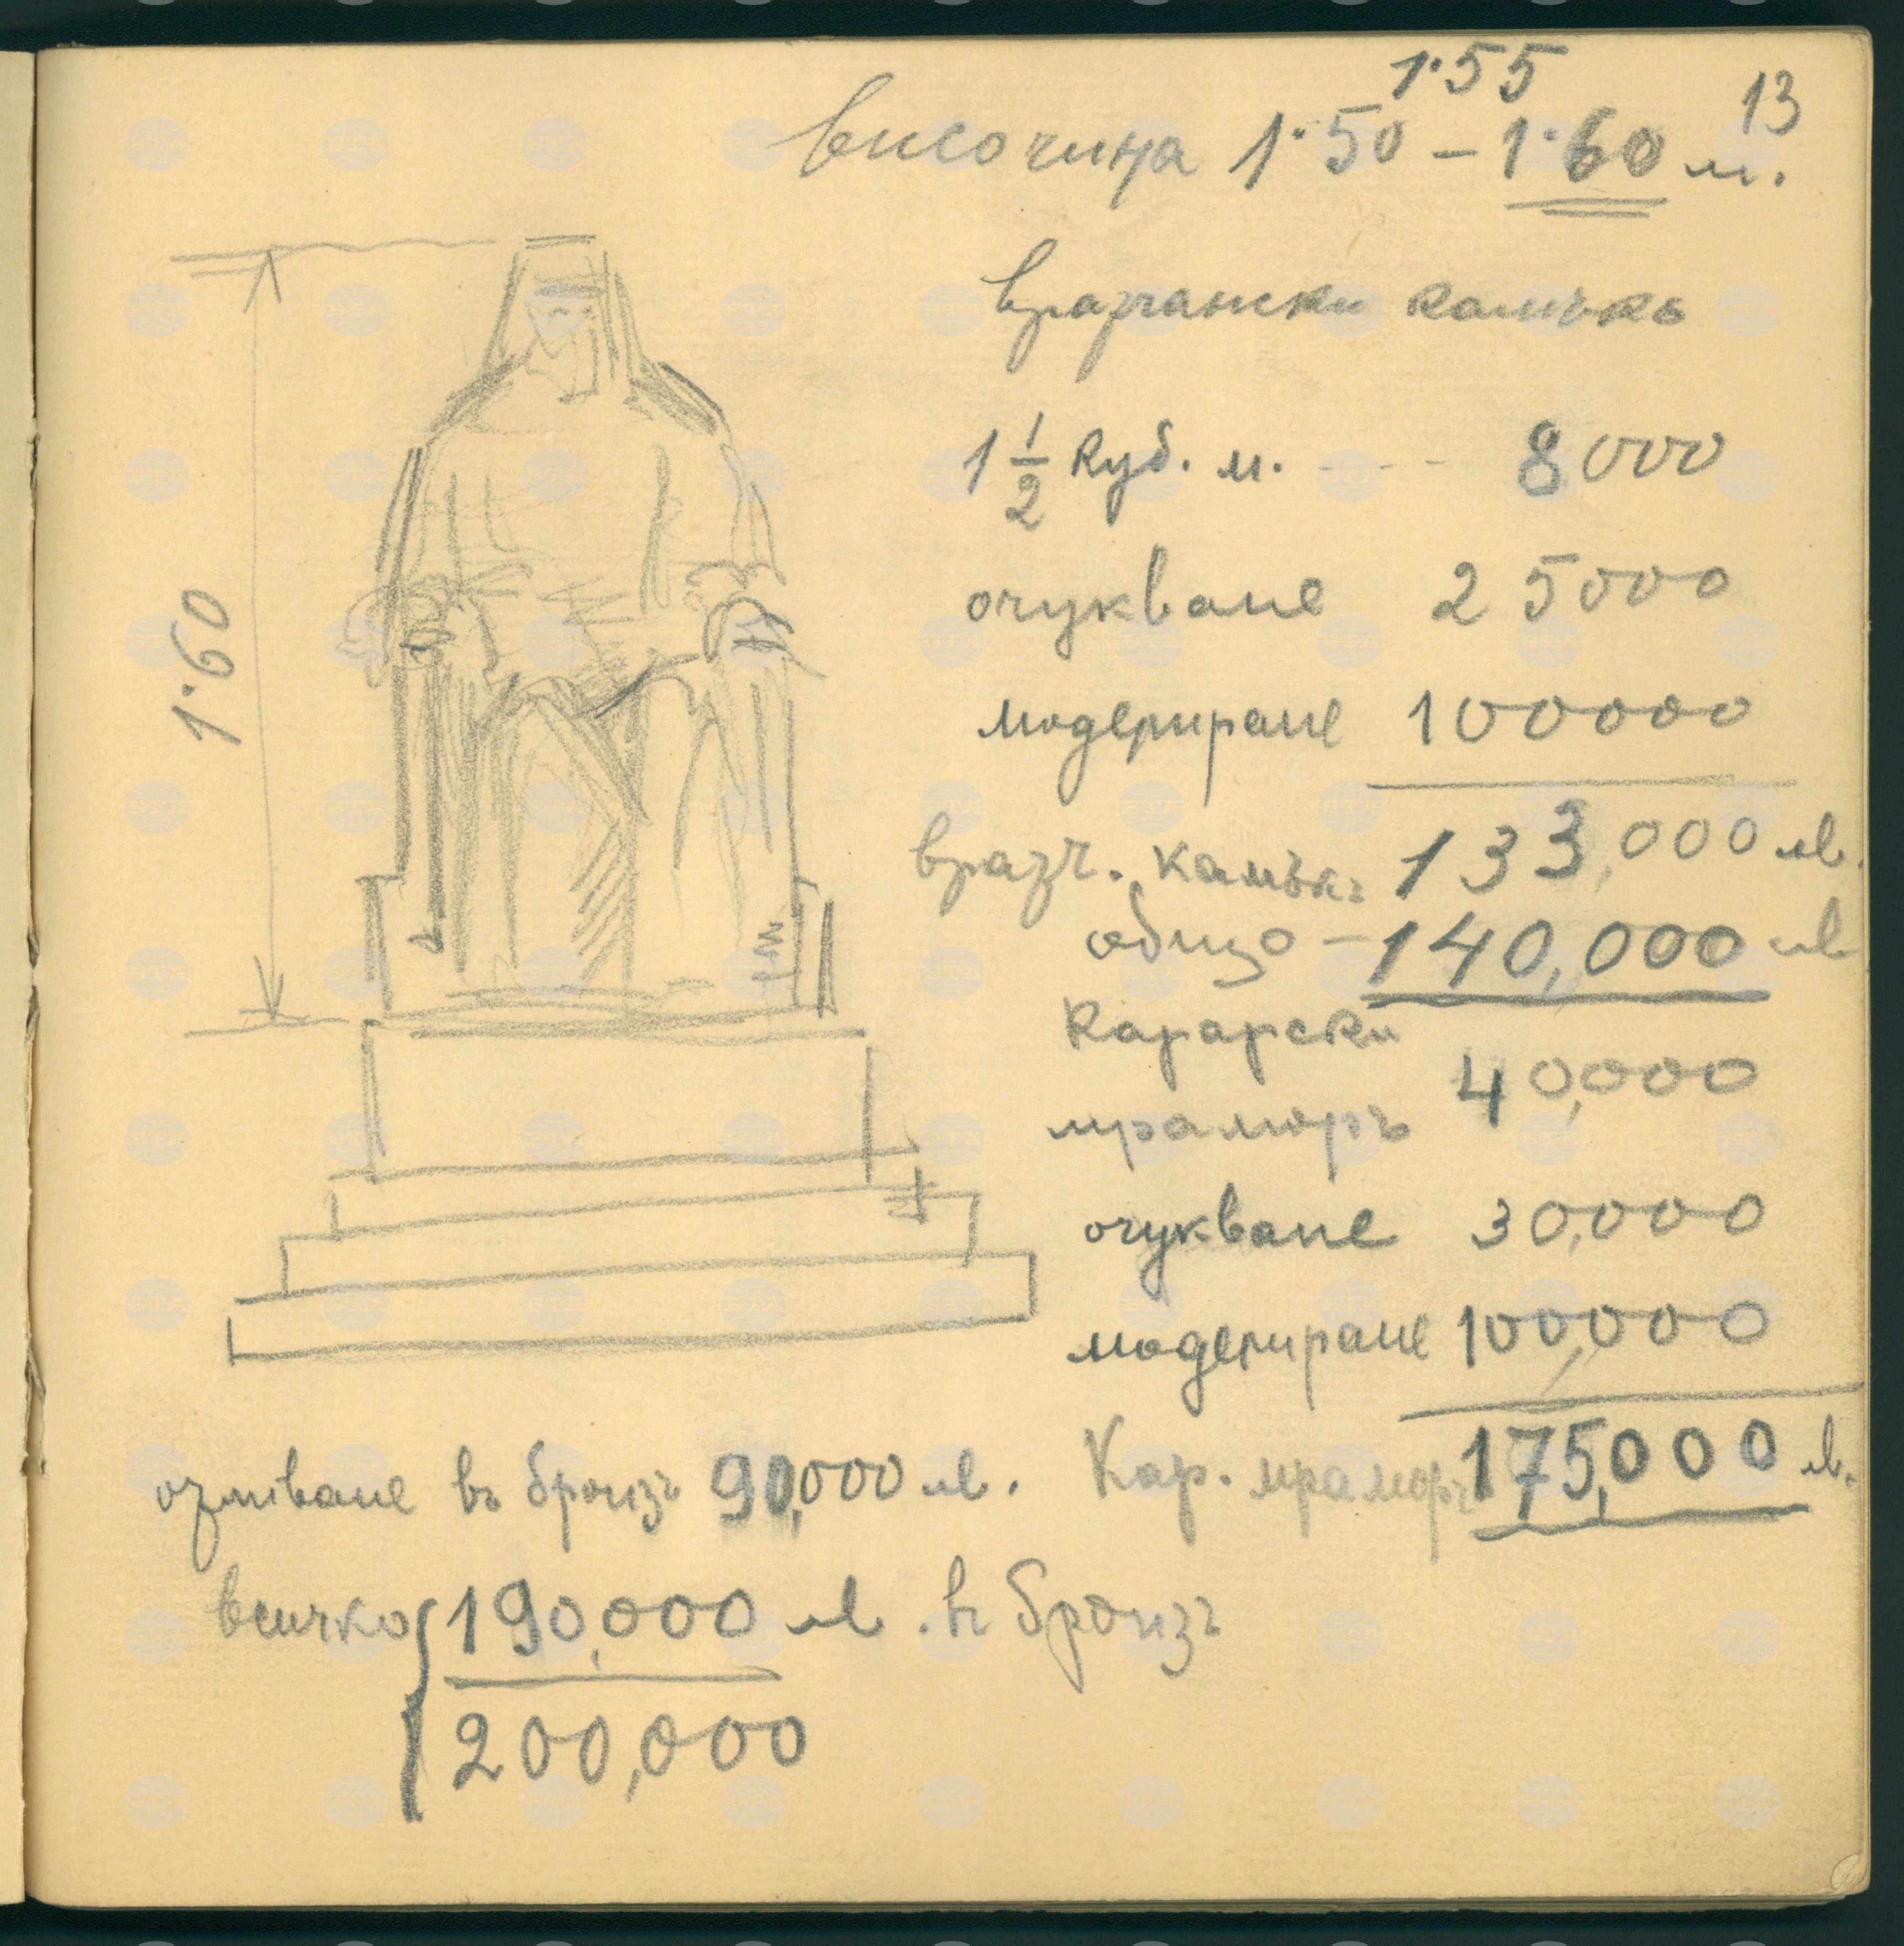 13
1·55
височина 1·50 – 1·60 м.
врачански камъкъ
1 1/2 куб. м. - - - 8000
очукване 25000
моделиране 100000
врач. камъкъ 133,000 лв.
общо – 140,000 лв
Карарски
мраморъ 40,000
очукване 30,000
моделиране 100,000
Кар. мраморъ 175,000 лв.
1·60
отливане въ бронзъ 90,000 лв.
всичко 190,000 лв. въ бронзъ
200,000